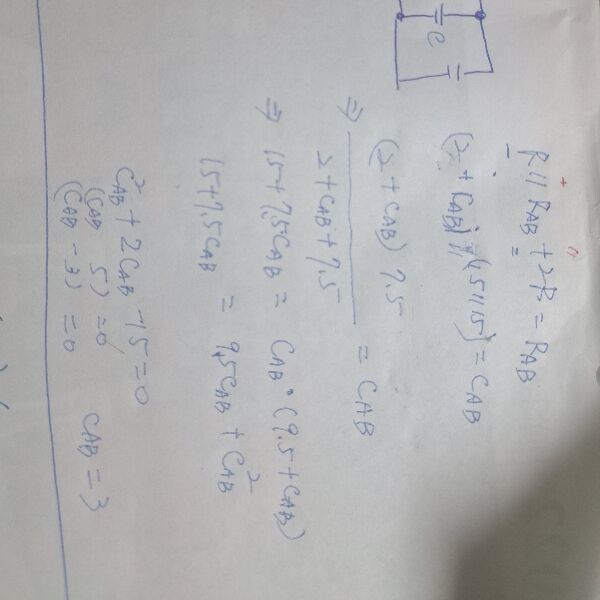 e
R // RAB + 2R = RAB
(2 + CAB) // (15//15) = CAB
⇒ (2 + CAB) 7.5 / 2 + CAB + 7.5 = CAB
⇒ 15 + 7.5CAB = CAB · (9.5 + CAB)
15 + 7.5CAB = 9.5CAB + CAB²
C²AB + 2CAB - 15 = 0
(CAB 5) = 0
(CAB - 3) = 0 CAB = 3